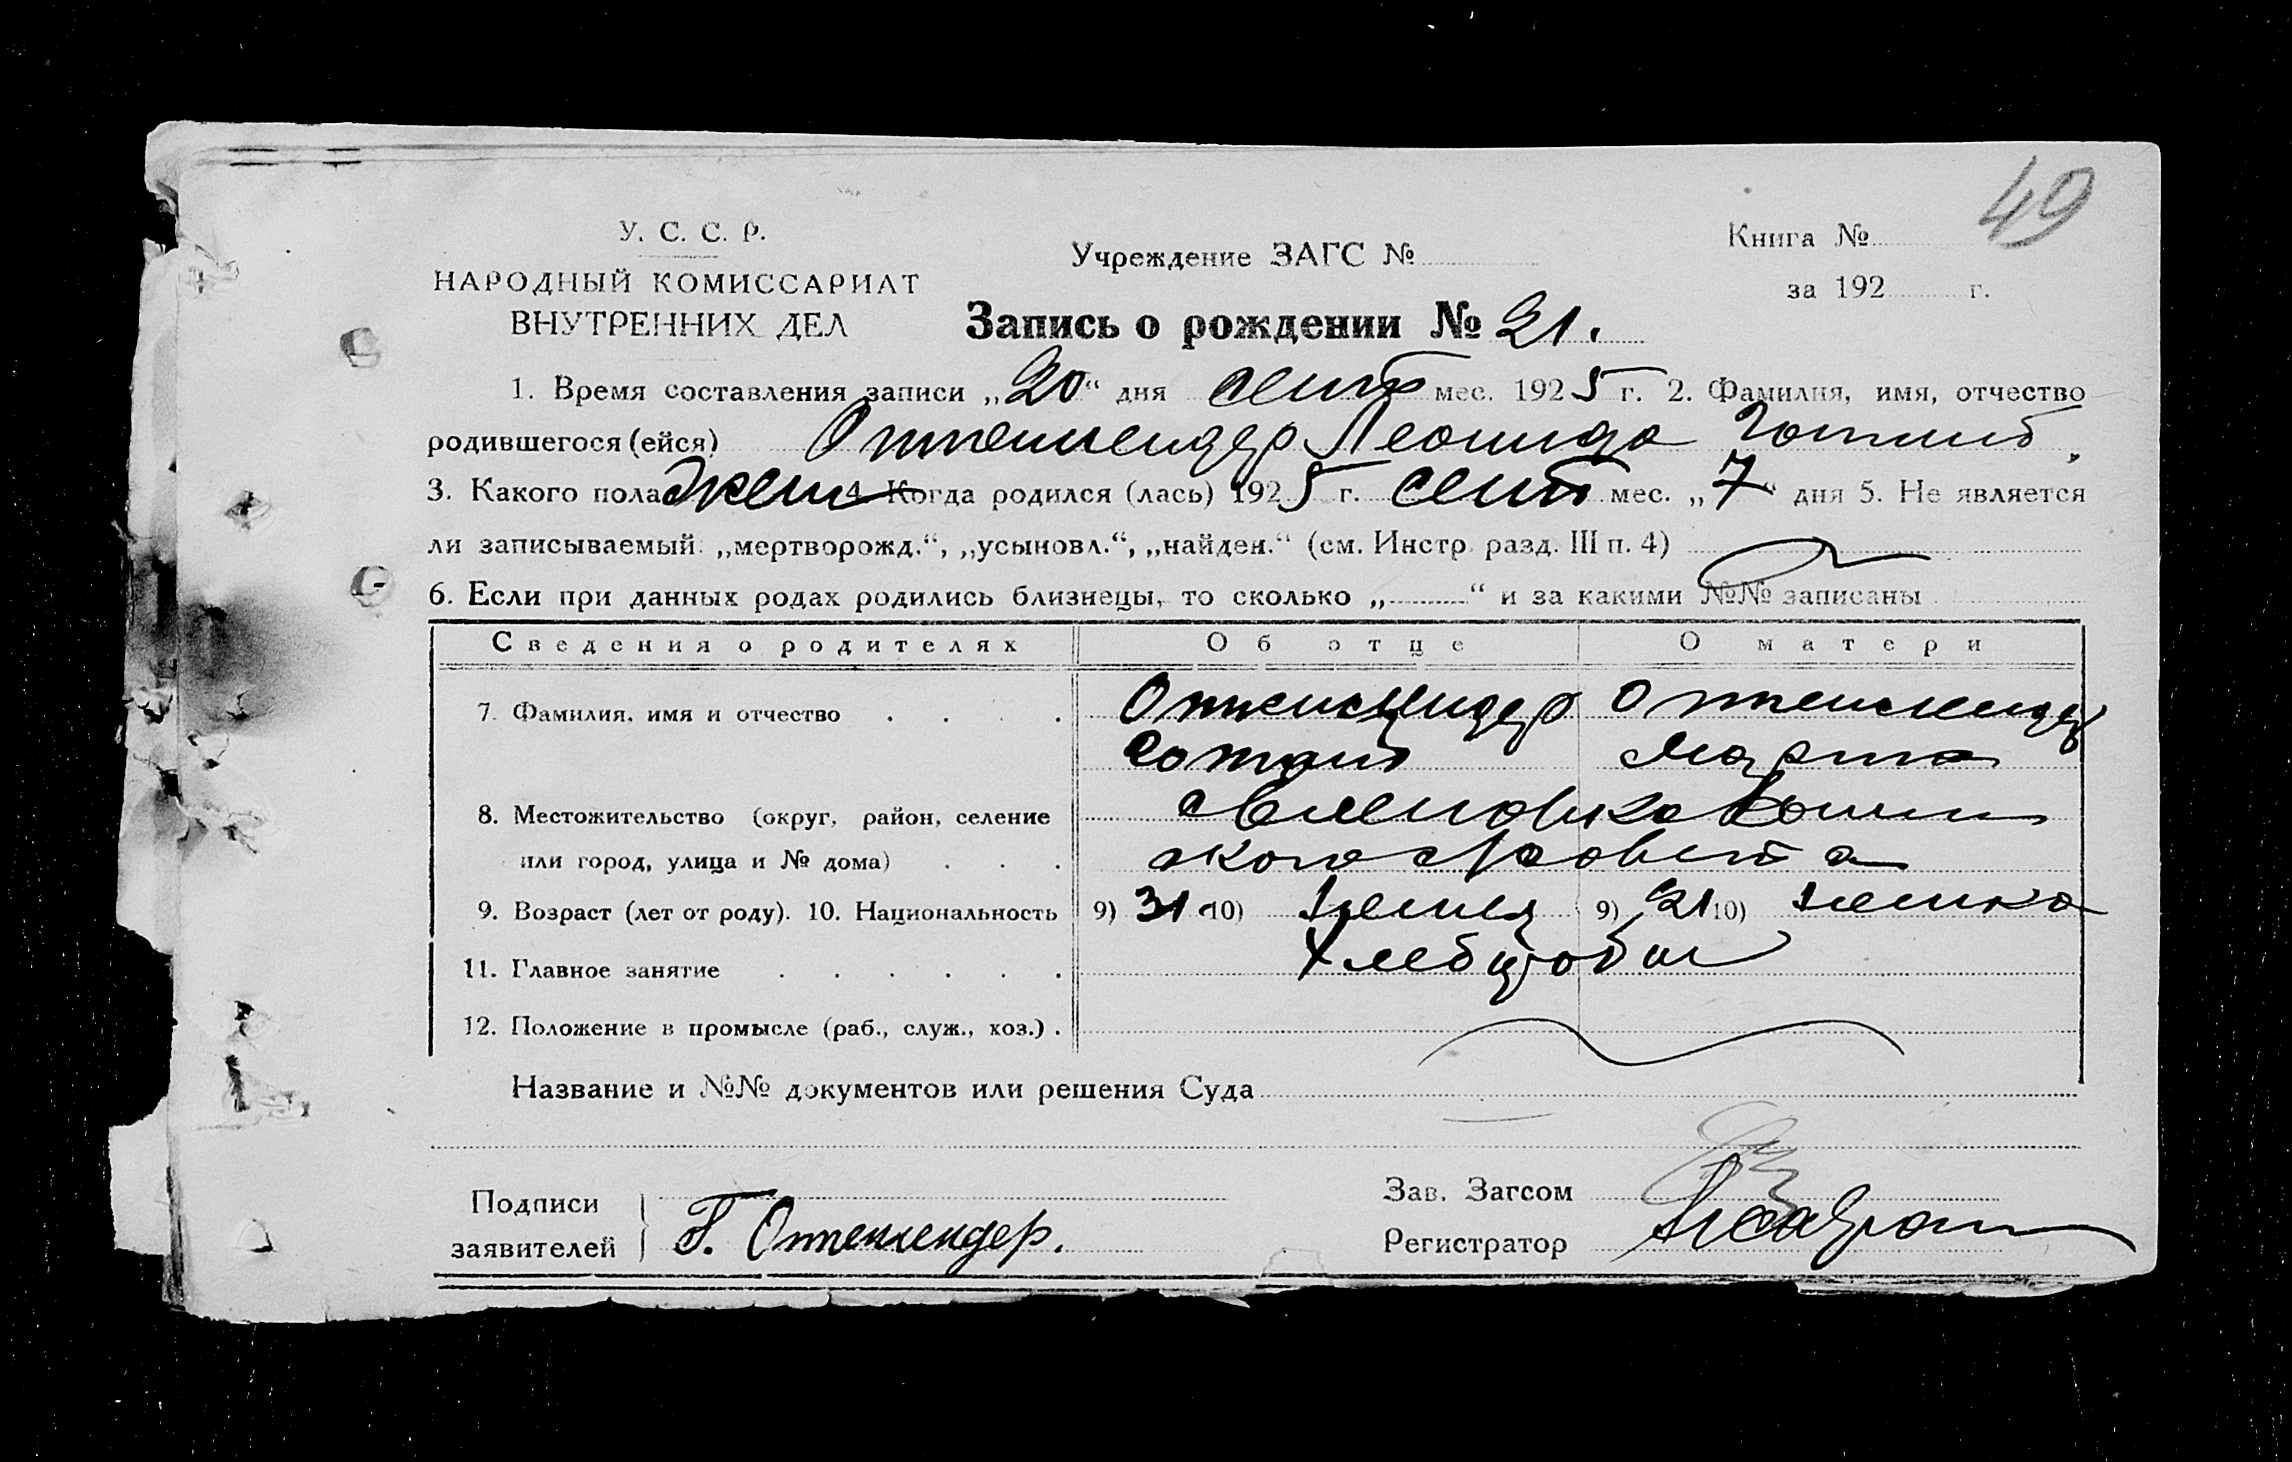 49
У. С. С. Р.
НАРОДНЫЙ КОМИССАРИАТ
ВНУТРЕННИХ ДЕЛ
Учреждение ЗАГС №
Книга №
за 192 г.
Запись о рождении № 21.
1. Время составления записи „20“ дня сент мес. 1925 г. 2. Фамилия, имя, отчество
родившегося (ейся) Оттенлендер Леонида Готлиб.
3. Какого пола жен 4. Когда родился (лась) 1925 г. сент мес. „7“ дня 5. Не является
ли записываемый: „мертворожд.“, „усыновл.“, „найден.“ (см. Инстр. разд. III п. 4)
6. Если при данных родах родились близнецы, то сколько „ “ и за какими №№ записаны
Сведения о родителях Об отце О матери
7. Фамилия, имя и отчество . . . . Оттенлендер Оттенлендер
Готлиб Мария
8. Местожительство (округ, район, селение
или город, улица и № дома) . . .
9. Возраст (лет от роду). 10. Национальность 9) 31 10) немец 9) 21 10) немка
11. Главное занятие . . . . . . Хлебороб
12. Положение в промысле (раб., служ., хоз.) .
Название и №№ документов или решения Суда
Подписи
заявителей Г. Оттенлендер.
Зав. Загсом
Регистратор